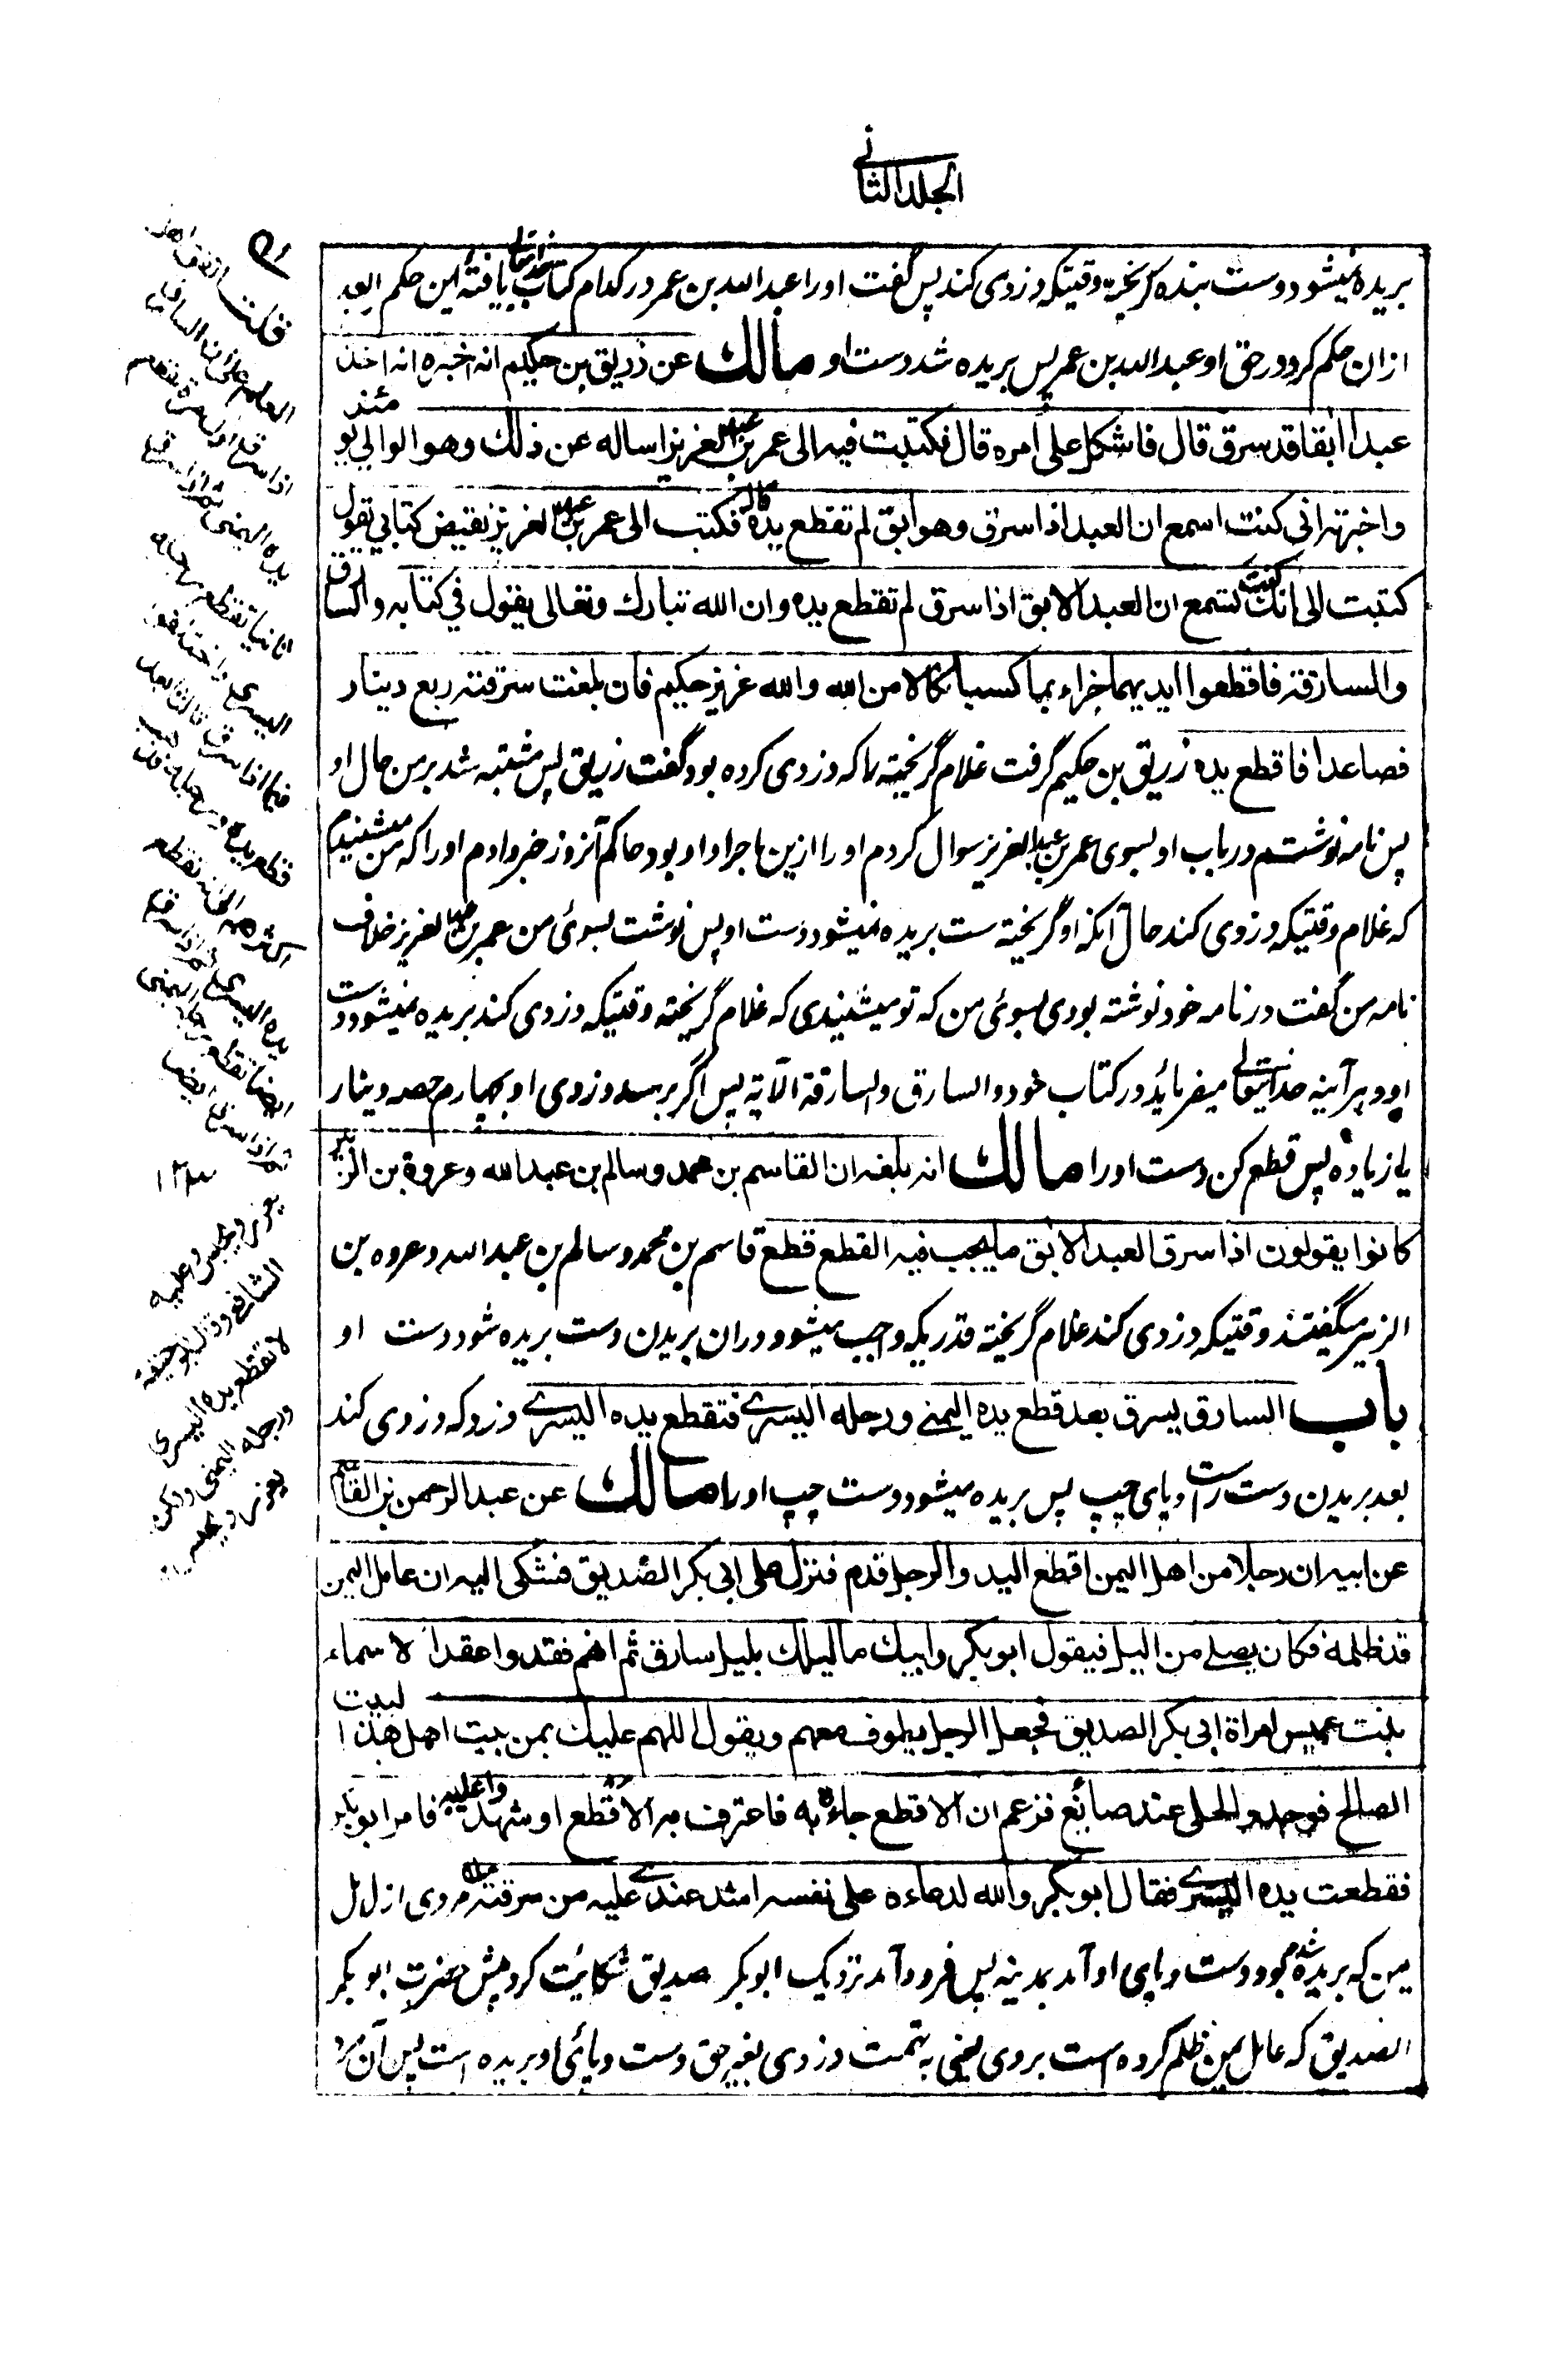 الجلد الثاني
بریده نمیشود دست بنده گریخته وقتیکه دزدی کند پس گفت او را عبدالله بن عمر در کدام کتاب خدایتعالی یافتهٔ این حکم را بعد
ازان حکم کرد در حق او عبدالله بن عمر پس بریده شد دست او مالك عن زريق بن حكيم انه اخبره انه اخذ
عبدا ابقا قد سرق قال فاشكل علي امره قال فكتبت فيه الى عمر بن عبد العزيز اساله عن ذلك وهو الوالي يومئذ
واخبرته اني كنت اسمع ان العبد اذا سرق وهو ابق لم تقطع يده قال فكتب الي عمر بن عبد العزيز نقيض كتابي تقول
كتبت الي انك كنت تسمع ان العبد الابق اذا سرق لم تقطع يده وان الله تبارك وتعالى يقول في كتابه والسارق
والسارقة فاقطعوا ايديهما جزاء بما كسبا نكالا من الله والله عزيز حكيم فان بلغت سرقته ربع دينار
فصاعدا فاقطع يده زریق بن حکیم گرفت غلام گریخته را که دزدی کرده بود گفت زریق پس مشتبه شد بر من حال او
پس نامه نوشتم در باب او بسوی عمر بن عبد العزیز سوال کردم او را ازین ماجرا و او بود حاکم آنروز خبر دادم او را که من میشنیدم
که غلام وقتیکه دزدی کند حال آنکه او گریخته ست بریده نمیشود دست او پس نوشت بسوئی من عمر بن عبد العزیز خلاف
نامه من گفت در نامه خود نوشته بودی بسوئی من که تو میشنیدی که غلام گریخته وقتیکه دزدی کند بریده نمیشود دست
او و هر آینه خدایتعالی میفرماید در کتاب خود والسارق والسارقة الآیة پس اگر برسد دزدی او بچهارم حصه دینار
یا زیاده پس قطع کن دست او را مالك انه بلغه ان القاسم بن محمد وسالم بن عبد الله وعروة بن الزبير
كانوا يقولون اذا سرق العبد الابق ما يجب فيه القطع قطع قاسم بن محمد و سالم بن عبدالله و عروه بن
الزبیر میگفتند وقتیکه دزدی کند غلام گریخته قدریکه واجب میشود دران بریدن دست بریده شود دست او
باب السارق يسرق بعد قطع يده اليمنے ورجله اليسرے فتقطع يده اليسرے دزد که دزدی کند
بعد بریدن دست راست و پای چپ پس بریده میشود دست چپ او را مالك عن عبد الرحمن بن القاسم
عن ابيه ان رجلا من اهل اليمن اقطع اليد والرجل قدم فنزل على ابي بكر الصديق فشكى اليه ان عامل اليمن
قد ظلمه فكان يصلے من اليل فيقول ابو بكر وابيك ما ليلك بليل سارق ثم انهم فقدوا عقدا لاسماء
بنت عميس امراة ابي بكر الصديق فجعل الرجل يطوف معهم ويقول اللهم عليك بمن بيت اهل هذا البيت
الصالح فوجدوا الحلي عند صائغ فزعم ان الاقطع جاءه به فاعترف به الاقطع او شهد واعليه فامر ابو بكر
فقطعت يده اليسرے فقال ابو بكر والله لدعاءه على نفسه اشد عندے عليه من سرقته مردی از اهل
یمن که بریده شده بود دست و پای او آمد بمدینه پس فرود آمد نزدیک ابو بکر صدیق شکایت کرد پیش حضرت ابو بکر
الصدیق که عامل یمن ظلم کرده است بر وی یعنی به تهمت دزدی بغیر حق دست و پائی او بریده است پس آن مرد
قلت اتفق اهل
العلم على ان السارق
اذا سرق اول مرة تقطع
يده اليمنى ثم اذا سرق
ثانيا تقطع رجله
اليسرى واختلفوا
فيما اذا سرق ثالثا بعد
قطع يده ورجله فذهب
اكثرهم الى انه تقطع
يده اليسرى ثم اذا سرق
ايضا تقطع رجله اليمنى
ثم اذا سرق ايضا
يعزر ويحبس وعليه
الشافعي وقال ابو حنيفة
لا تقطع يده اليسرى
ورجله اليمنى ولكن
يعزر ويحبس